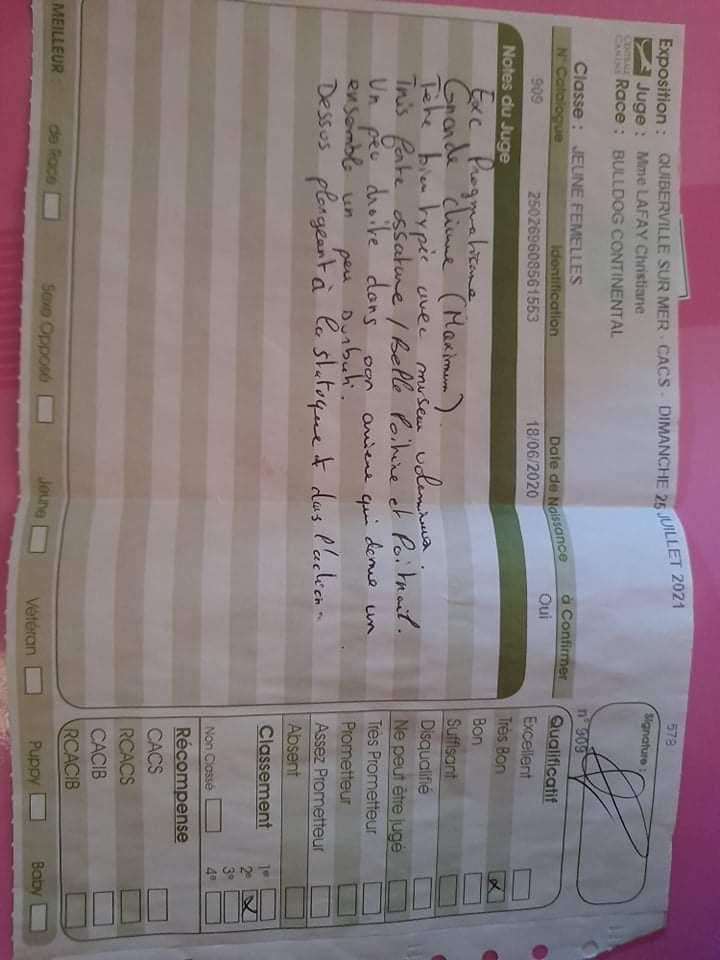 Exposition : QUIBERVILLE SUR MER - CACS - DIMANCHE 25 JUILLET 2021
578
CENTRALE CANINE
Juge : Mme LAFAY Christiane
Race : BULLDOG CONTINENTAL
Signature :
Classe : JEUNE FEMELLES
n° 909
N° Catalogue Identification Date de Naissance à Confirmer
909 250269608561553 18/06/2020 Oui
Notes du Juge
Exc
Grande chienne (Maximum)
Tête bien typée avec museau volumineux.
Très forte ossature / Belle Poitrine et Poitrail.
Un peu droite dans son arrière qui donne un
ensemble un peu
Dessus plongeant à la statique et dans l'action.
Qualificatif
Excellent
Très Bon X
Bon
Suffisant
Disqualifié
Ne peut être jugé
Très Prometteur
Prometteur
Assez Prometteur
Absent
Classement
1e
2e X
3e
Non Classé 4e
Récompense
CACS
RCACS
CACIB
RCACIB
MEILLEUR : de Race Sexe Opposé Jeune Vétéran Puppy Baby